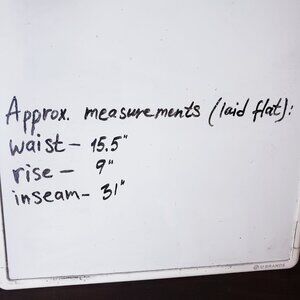 Approx. measurements (laid flat):
waist- 15.5"
rise- 9"
inseam- 31"
U BRANDS